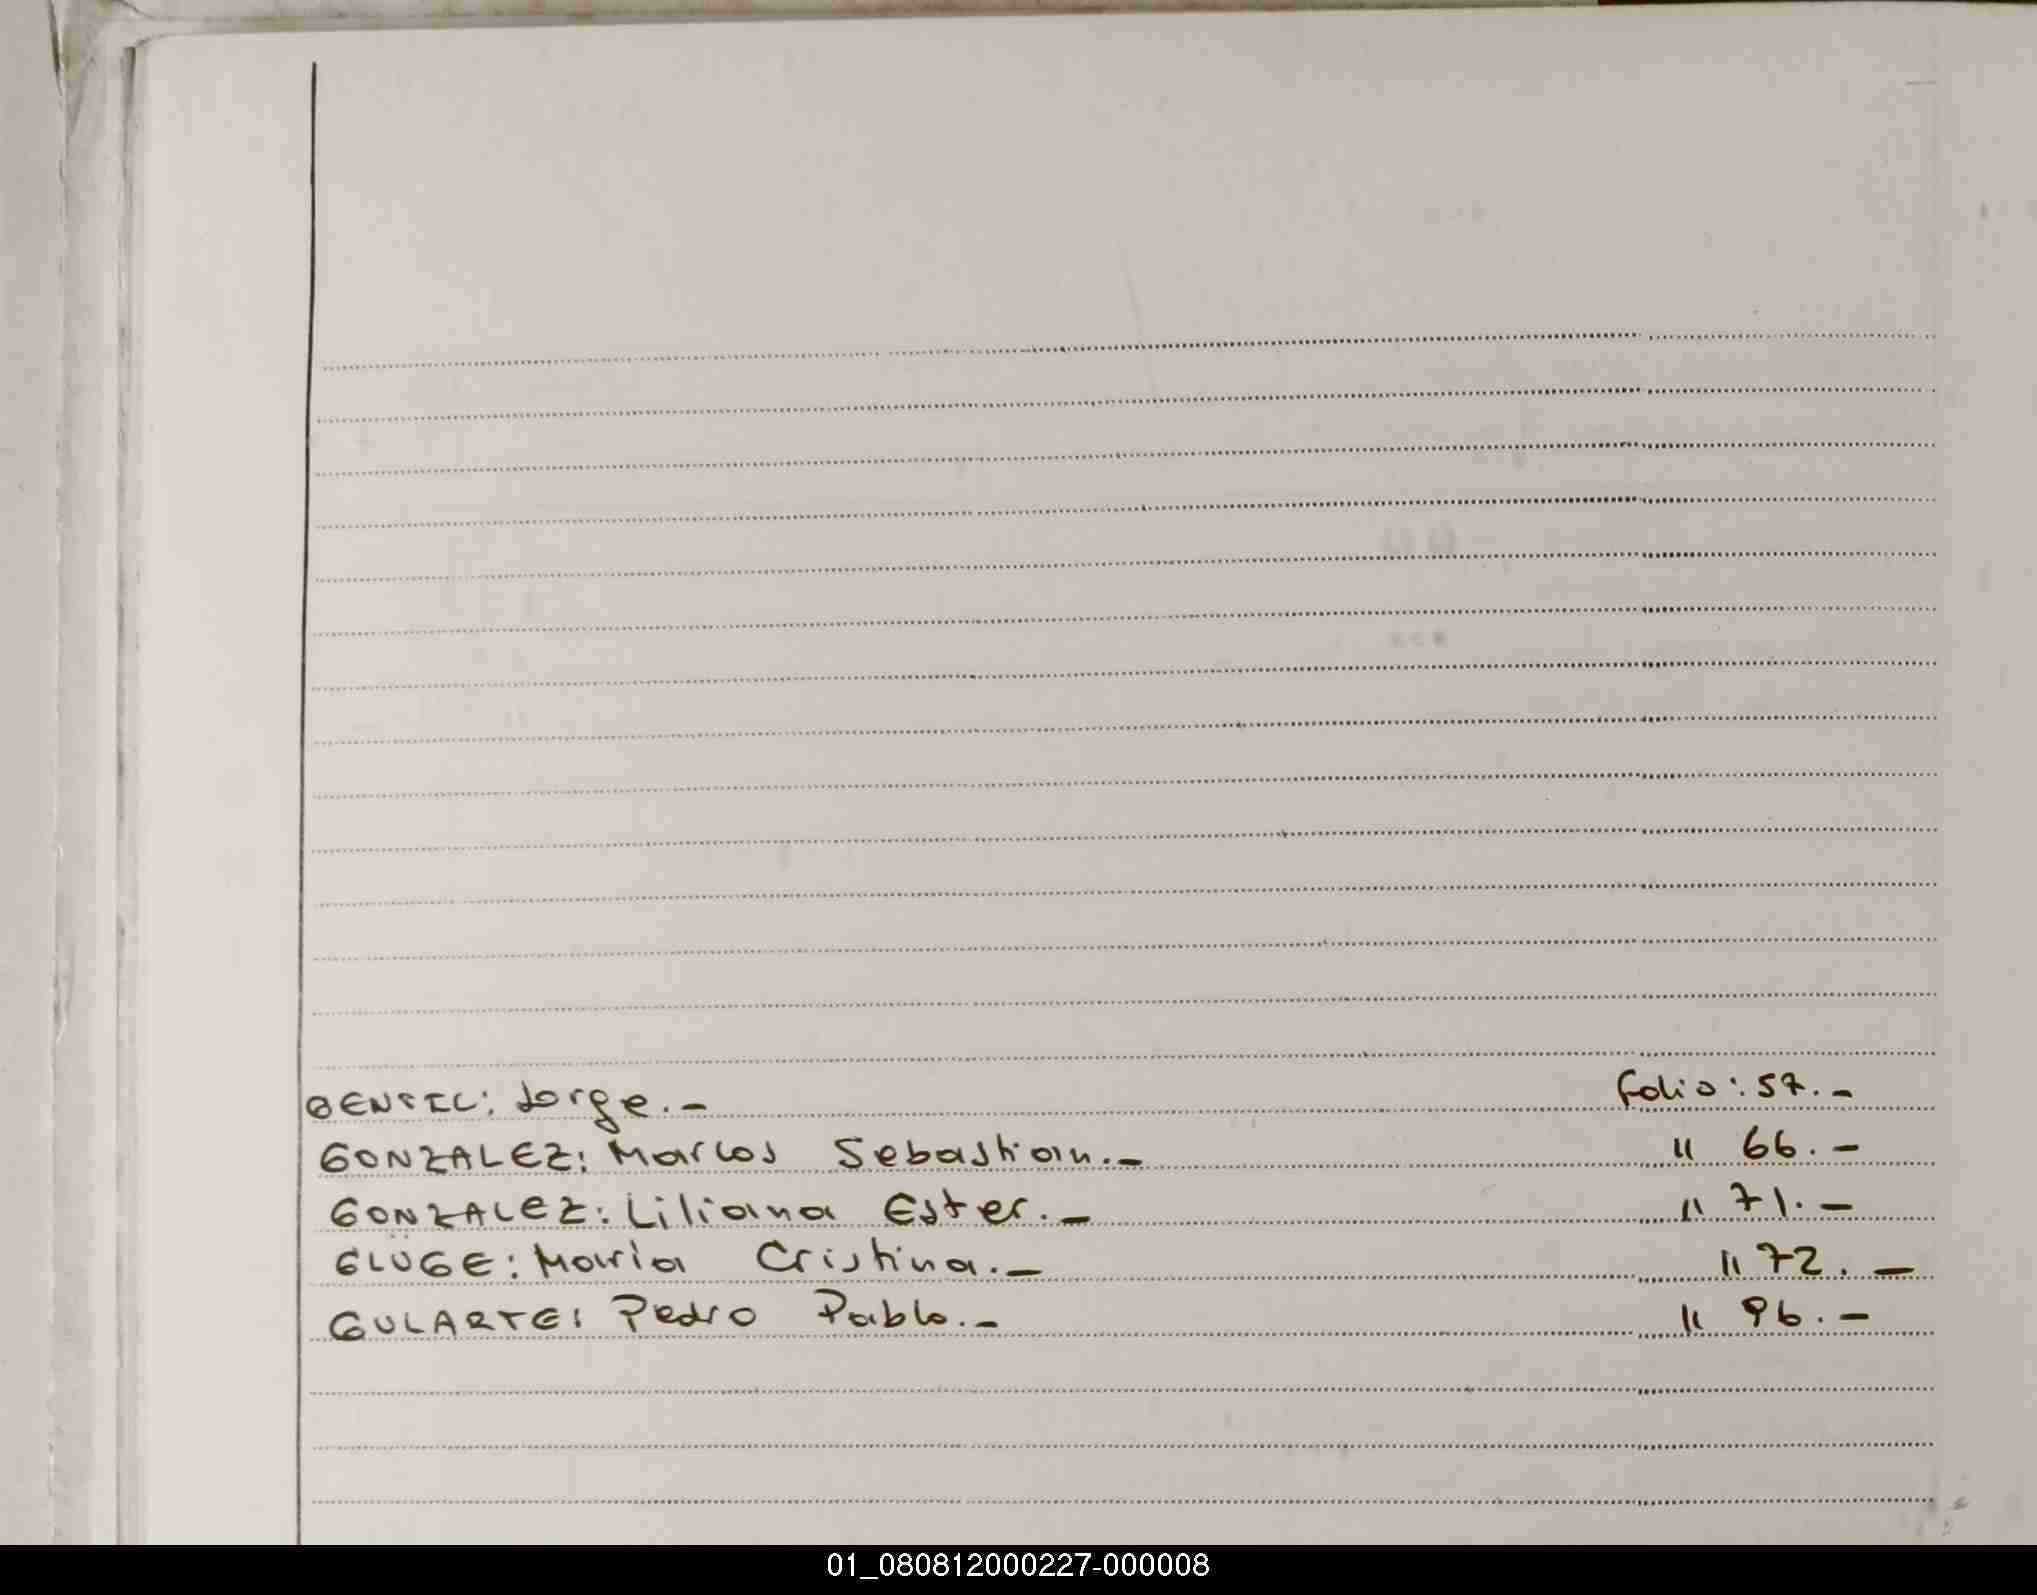 GENSIL: Jorge.- Folio: 57.-
GONZALEZ: Marcos Sebastian.- " 66.-
GONZALEZ: Liliana Ester.- " 71.-
GLÜGE: Maria Cristina.- " 72.-
GULARTE: Pedro Pablo.- " 96.-
01_080812000227-000008